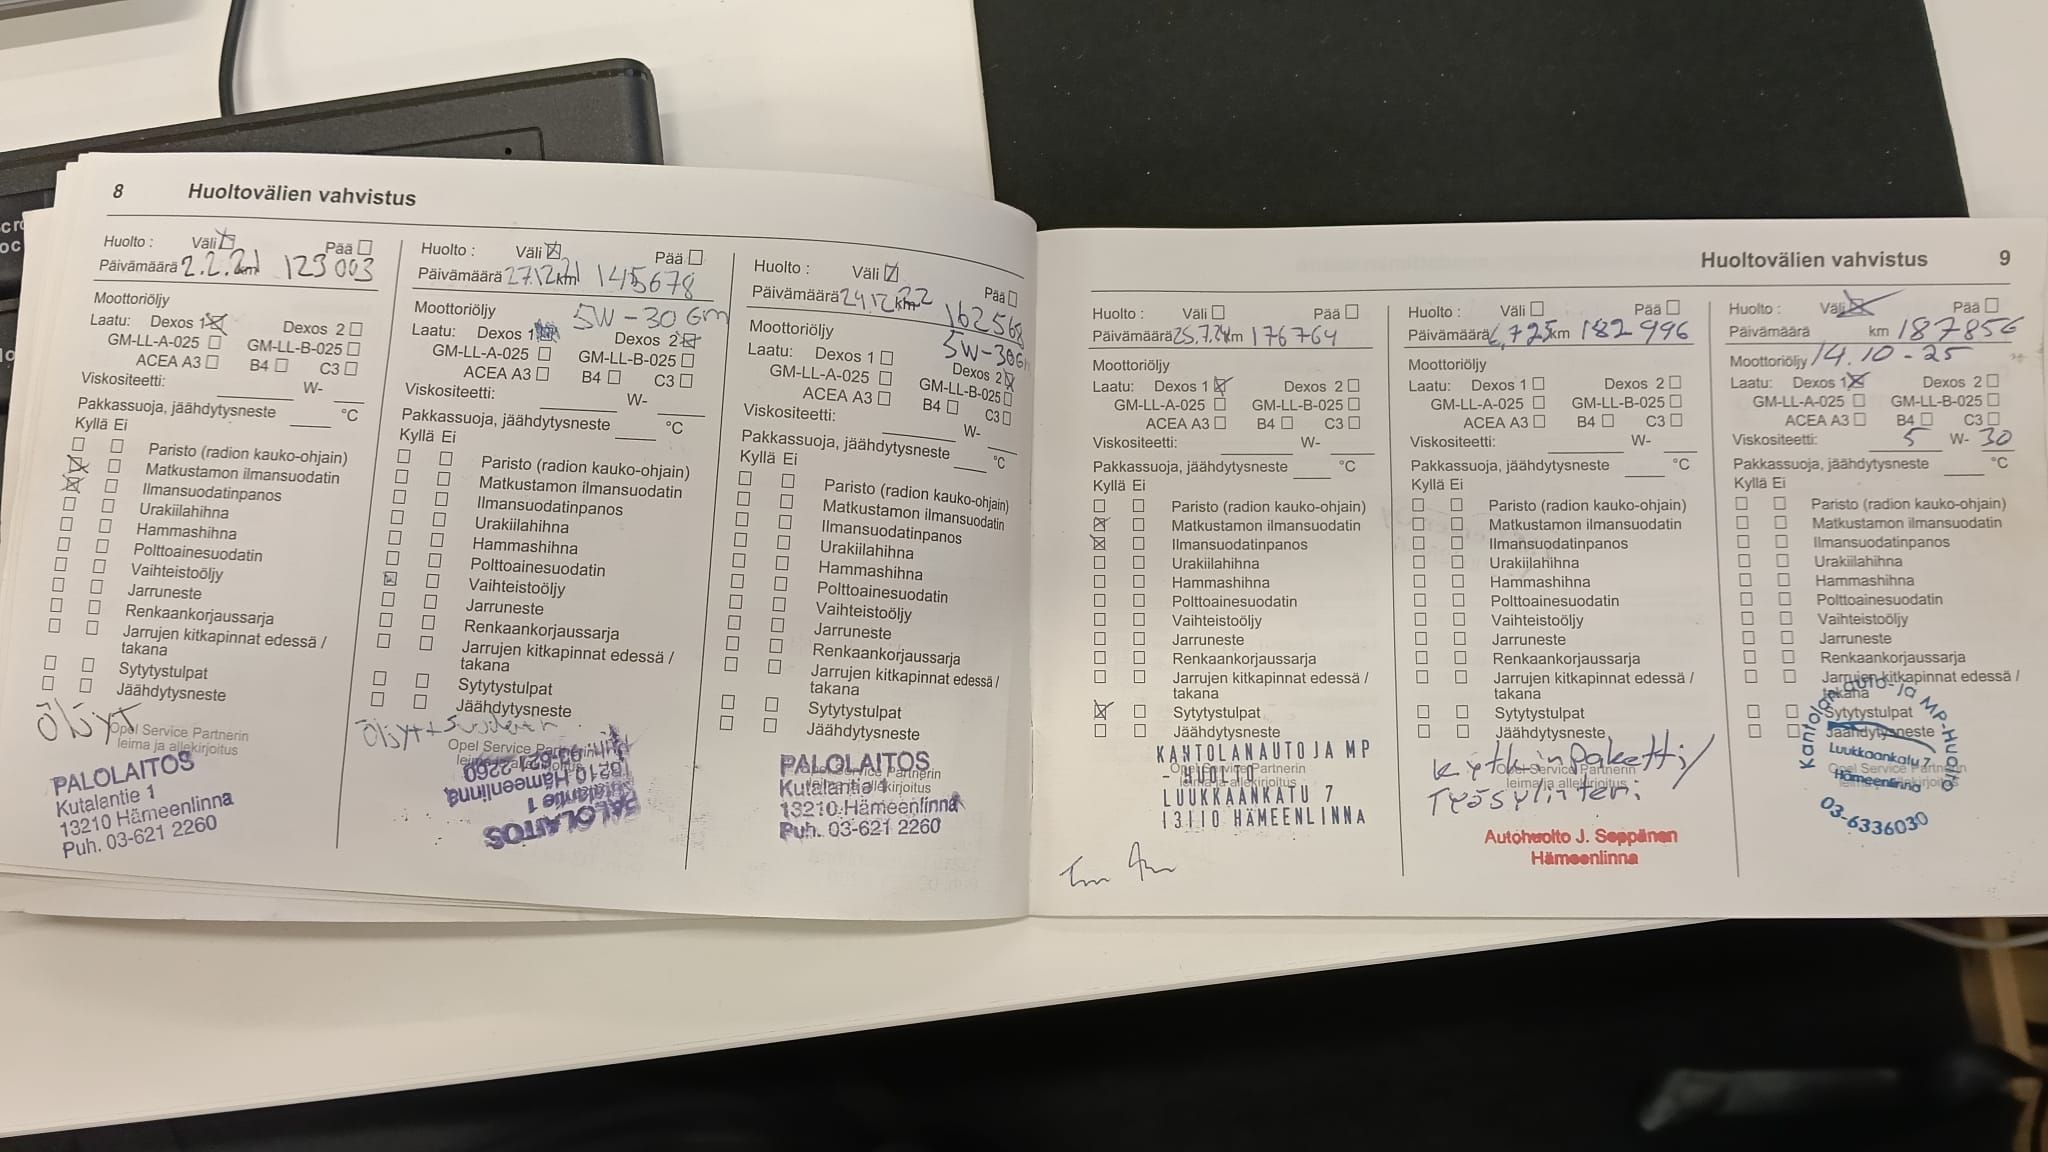 8 Huoltovälien vahvistus
Huolto : Väli ☒ Pää ☐
Päivämäärä 2.2.21 km 123 003
Moottoriöljy
Laatu: Dexos 1 ☒ Dexos 2 ☐
GM-LL-A-025 ☐ GM-LL-B-025 ☐
ACEA A3 ☐ B4 ☐ C3 ☐
Viskositeetti: ______ W- ____
Pakkassuoja, jäähdytysneste ____ °C
Kyllä Ei
☐ ☐ Paristo (radion kauko-ohjain)
☒ ☐ Matkustamon ilmansuodatin
☒ ☐ Ilmansuodatinpanos
☐ ☐ Urakiilahihna
☐ ☐ Hammashihna
☐ ☐ Polttoainesuodatin
☐ ☐ Vaihteistoöljy
☐ ☐ Jarruneste
☐ ☐ Renkaankorjaussarja
☐ ☐ Jarrujen kitkapinnat edessä /
takana
☐ ☐ Sytytystulpat
☐ ☐ Jäähdytysneste
öljyt
Opel Service Partnerin
leima ja allekirjoitus
PALOLAITOS
Kutalantie 1
13210 Hämeenlinna
Puh. 03-621 2260
Huolto : Väli ☒ Pää ☐
Päivämäärä 27.12.21 km 145678
Moottoriöljy 5W-30 Gm
Laatu: Dexos 1 Dexos 2 ☒
GM-LL-A-025 ☐ GM-LL-B-025 ☐
ACEA A3 ☐ B4 ☐ C3 ☐
Viskositeetti: ______ W- ____
Pakkassuoja, jäähdytysneste ____ °C
Kyllä Ei
☐ ☐ Paristo (radion kauko-ohjain)
☐ ☐ Matkustamon ilmansuodatin
☐ ☐ Ilmansuodatinpanos
☐ ☐ Urakiilahihna
☐ ☐ Hammashihna
☐ ☐ Polttoainesuodatin
☒ ☐ Vaihteistoöljy
☐ ☐ Jarruneste
☐ ☐ Renkaankorjaussarja
☐ ☐ Jarrujen kitkapinnat edessä /
takana
☐ ☐ Sytytystulpat
☐ ☐ Jäähdytysneste
Öljyt +
Opel Service Partnerin
PALOLAITOS
Kutalantie 1
13210 Hämeenlinna
Puh. 03-621 2260
Huolto : Väli ☒ Pää ☐
Päivämäärä 24.12.22 km 162568
Moottoriöljy 5W-30 Gm
Laatu: Dexos 1 ☐ Dexos 2 ☒
GM-LL-A-025 ☐ GM-LL-B-025 ☐
ACEA A3 ☐ B4 ☐ C3 ☐
Viskositeetti: ______ W- ____
Pakkassuoja, jäähdytysneste ____ °C
Kyllä Ei
☐ ☐ Paristo (radion kauko-ohjain)
☐ ☐ Matkustamon ilmansuodatin
☐ ☐ Ilmansuodatinpanos
☐ ☐ Urakiilahihna
☐ ☐ Hammashihna
☐ ☐ Polttoainesuodatin
☐ ☐ Vaihteistoöljy
☐ ☐ Jarruneste
☐ ☐ Renkaankorjaussarja
☐ ☐ Jarrujen kitkapinnat edessä /
takana
☐ ☐ Sytytystulpat
☐ ☐ Jäähdytysneste
Opel Service Partnerin
leima ja allekirjoitus
PALOLAITOS
Kutalantie 1
13210 Hämeenlinna
Puh. 03-621 2260
Huoltovälien vahvistus 9
Huolto : Väli ☐ Pää ☐
Päivämäärä 25.7.24 km 176764
Moottoriöljy
Laatu: Dexos 1 ☒ Dexos 2 ☐
GM-LL-A-025 ☐ GM-LL-B-025 ☐
ACEA A3 ☐ B4 ☐ C3 ☐
Viskositeetti: ______ W- ____
Pakkassuoja, jäähdytysneste ____ °C
Kyllä Ei
☐ ☐ Paristo (radion kauko-ohjain)
☒ ☐ Matkustamon ilmansuodatin
☒ ☐ Ilmansuodatinpanos
☐ ☐ Urakiilahihna
☐ ☐ Hammashihna
☐ ☐ Polttoainesuodatin
☐ ☐ Vaihteistoöljy
☐ ☐ Jarruneste
☐ ☐ Renkaankorjaussarja
☐ ☐ Jarrujen kitkapinnat edessä /
takana
☒ ☐ Sytytystulpat
☐ ☐ Jäähdytysneste
Opel Service Partnerin
leima ja allekirjoitus
KANTOLAN AUTO JA MP
- HUOLTO
LUUKKAANKATU 7
13110 HÄMEENLINNA
Huolto : Väli ☐ Pää ☐
Päivämäärä 6.725 km 182 996
Moottoriöljy
Laatu: Dexos 1 ☐ Dexos 2 ☐
GM-LL-A-025 ☐ GM-LL-B-025 ☐
ACEA A3 ☐ B4 ☐ C3 ☐
Viskositeetti: ______ W- ____
Pakkassuoja, jäähdytysneste ____ °C
Kyllä Ei
☐ ☐ Paristo (radion kauko-ohjain)
☐ ☐ Matkustamon ilmansuodatin
☐ ☐ Ilmansuodatinpanos
☐ ☐ Urakiilahihna
☐ ☐ Hammashihna
☐ ☐ Polttoainesuodatin
☐ ☐ Vaihteistoöljy
☐ ☐ Jarruneste
☐ ☐ Renkaankorjaussarja
☐ ☐ Jarrujen kitkapinnat edessä /
takana
☐ ☐ Sytytystulpat
☐ ☐ Jäähdytysneste
Kytkinpaketti/
Opel Service Partnerin
leima ja allekirjoitus
Työsylinteri
Autohuolto J. Seppänen
Hämeenlinna
Huolto : Väli ☒ Pää ☐
Päivämäärä km 187856
Moottoriöljy 14.10-25
Laatu: Dexos 1 ☒ Dexos 2 ☐
GM-LL-A-025 ☐ GM-LL-B-025 ☐
ACEA A3 ☐ B4 ☐ C3 ☐
Viskositeetti: 5 W- 30
Pakkassuoja, jäähdytysneste ____ °C
Kyllä Ei
☐ ☐ Paristo (radion kauko-ohjain)
☐ ☐ Matkustamon ilmansuodatin
☐ ☐ Ilmansuodatinpanos
☐ ☐ Urakiilahihna
☐ ☐ Hammashihna
☐ ☐ Polttoainesuodatin
☐ ☐ Vaihteistoöljy
☐ ☐ Jarruneste
☐ ☐ Renkaankorjaussarja
☐ ☐ Jarrujen kitkapinnat edessä /
takana
☐ ☐ Sytytystulpat
☐ ☐ Jäähdytysneste
Opel Service Partnerin
Kantolan auto-ja MP-Huolto
Luukkaankatu 7
Hämeenlinna
03-6336030